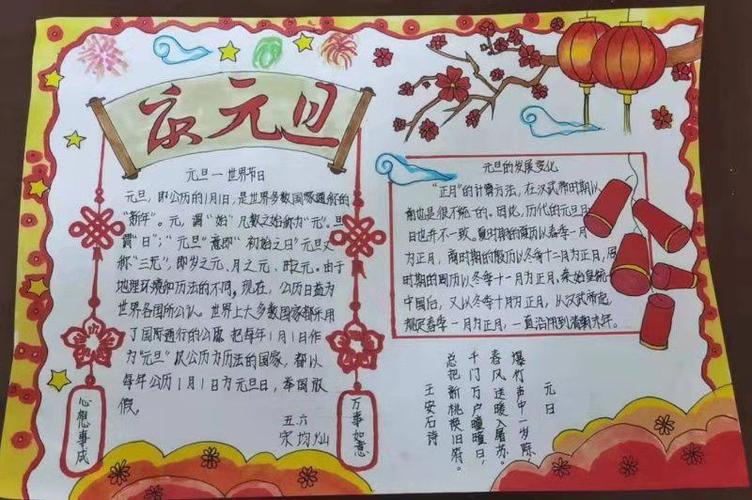 庆元旦
元旦一世界节日
元旦，即公历的1月1日，是世界多数国家通称的
"新年"。元，谓"始"，凡数之始称为"元"。旦
谓"日"；"元旦"意即"初始之日"元旦又
称"三元"，即岁之元、月之元、时之元。由于
地理环境和历法的不同，现在，公历日益为
世界各国所公认。世界上大多数国家都采用
了国际通行的公历 把每年1月1日作
为"元旦" 以公历为历法的国家，都以
每年公历1月1日为元旦日，举国放
假。
五.六
宋均灿
心想事成
万事如意
元旦的发展变化
"正月"的计算方法，在汉武帝时期以
前也是很不统一的。因此，历代的元旦日
日也并不一致。夏时期的夏历以春季一月
为正月，商时期的殷历以冬季十二月为正月，周
时期的周历以冬季十一月为正月。秦始皇统一
中国后，又以冬季十月为正月，从汉武帝起，
规定春季一月为正月，一直沿用到清朝末年。
元日
爆竹声中一岁除，
春风送暖入屠苏。
千门万户曈曈日，
总把新桃换旧符。
王安石诗